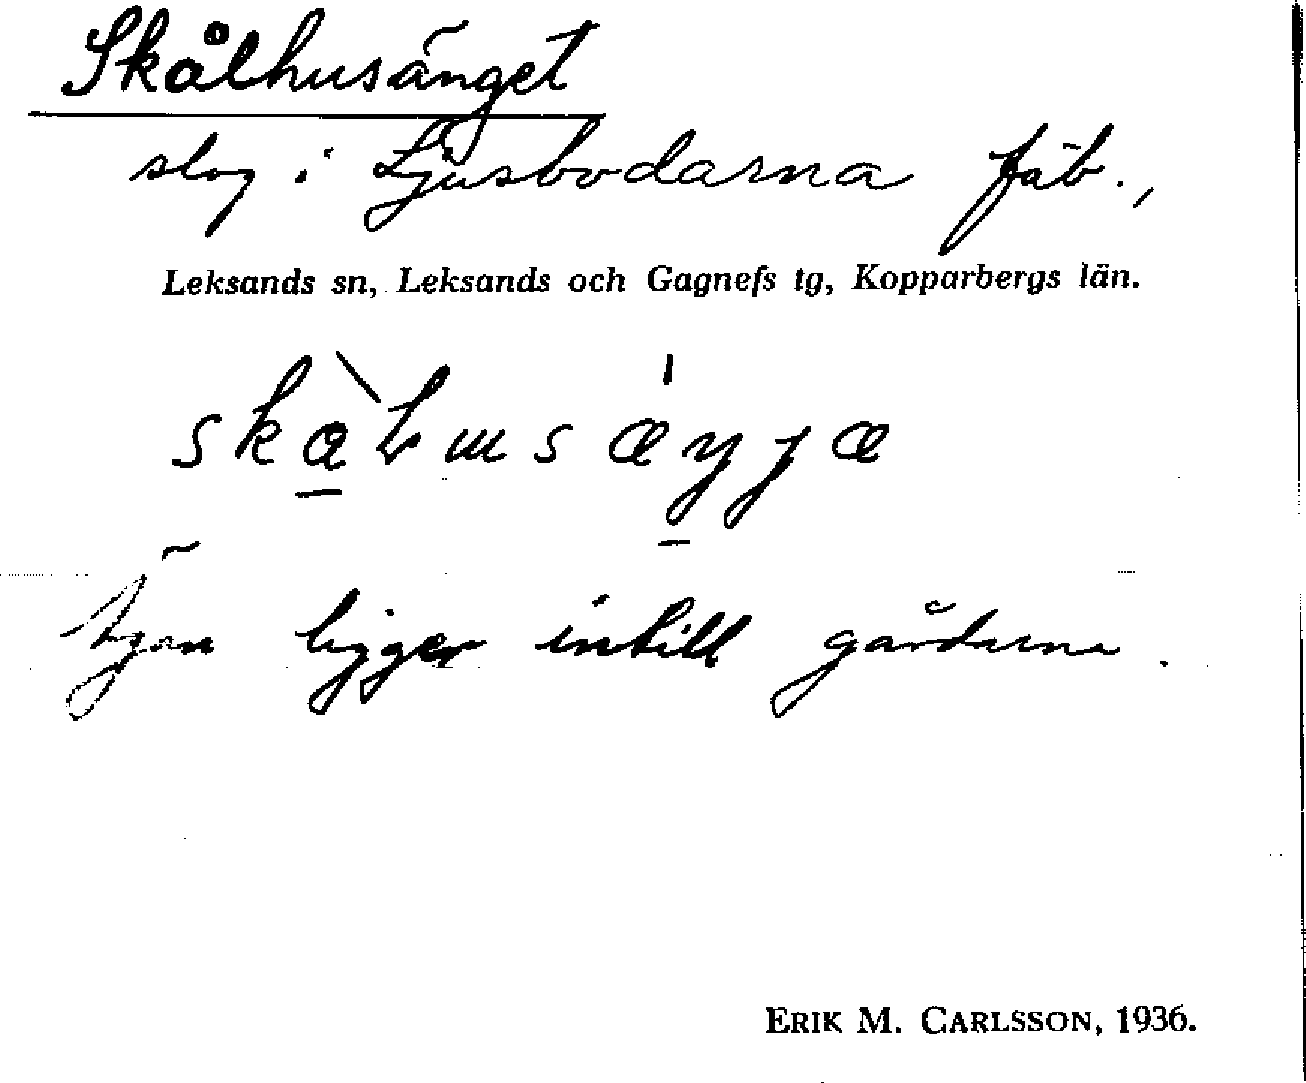 Skålhusänget
slog i Ljusbodarna fäb.,
Leksands sn, Leksands och Gagnefs tg, Kopparbergs län.
ligger intill gårdarna.
ERIK M. CARLSSON, 1936.